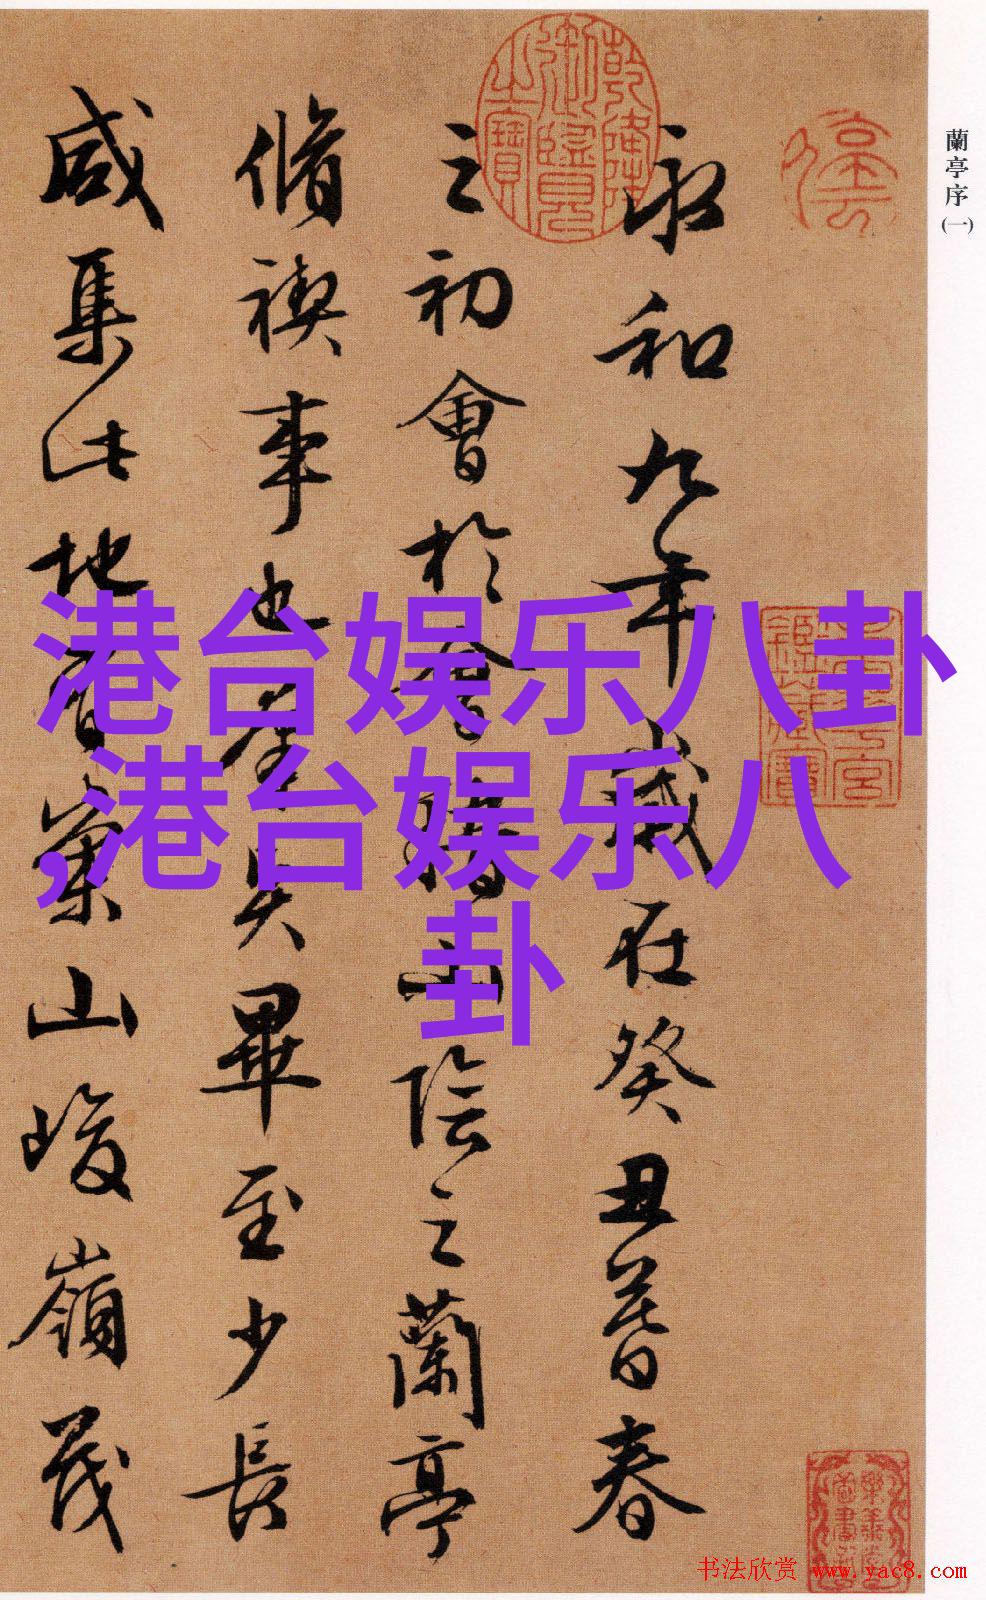 蘭亭序
(一)
永和九年歲在癸丑暮春
之初會於會稽山陰之蘭亭
脩禊事也羣賢畢至少長
咸集此地有崇山峻領茂
乾隆御覽之寶
港台娱乐八卦
,港台娱乐八
卦
书法欣赏 www.yac8.com